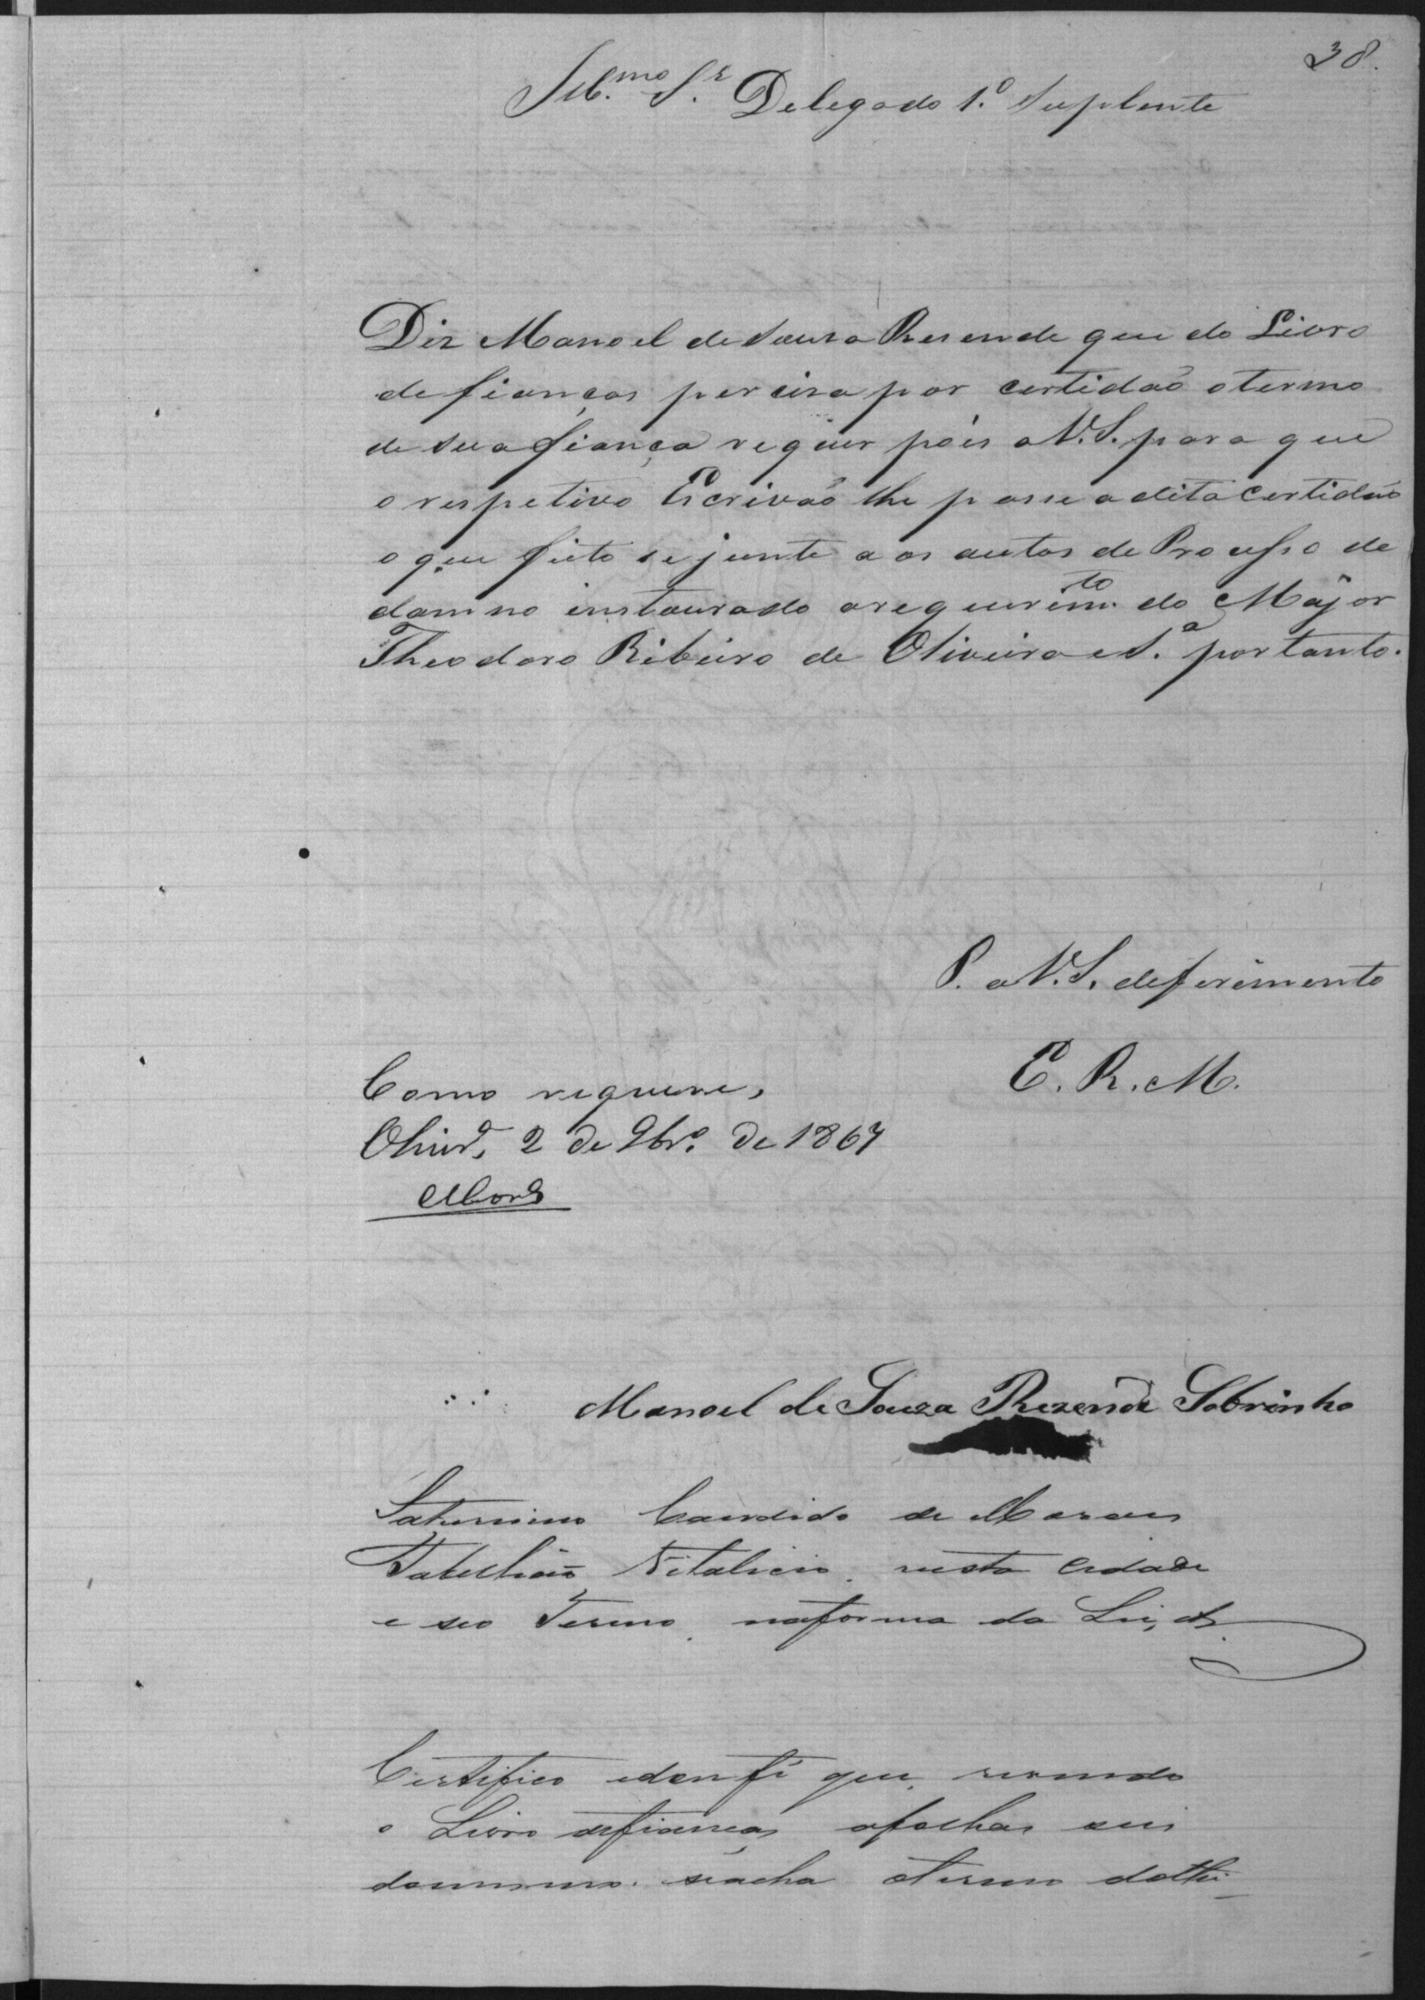 38.
Ill.mo Sr. Delegado 1.º Suplente
Diz Manoel de Souza Resende que do Livro
de fianças percisa por certidaõ o termo
de sua fiança requer pois a V.S. para que
o respetivo Escrivaõ lhe passe a dita certidaõ
o que feito se junte a os autos de Processo de
damno instaurado a requerim.to do Major
Theodoro Ribeiro de Oliveira e S.a portanto.
P. a V.S. deferimento
E. R. M.
Como requere,
Olivr.a 2 de 9br.o de 1867
Manoel de Souza Rezende Sobrinho
Saturnino Candido de Moraes
Tabelliaõ Vitalicio nesta Cidade
e seo Termo na forma da Lei, &
Certifico e dou fé que revendo
o Livro de fianças a folhas seis
do mesmo se acha o termo do thi-